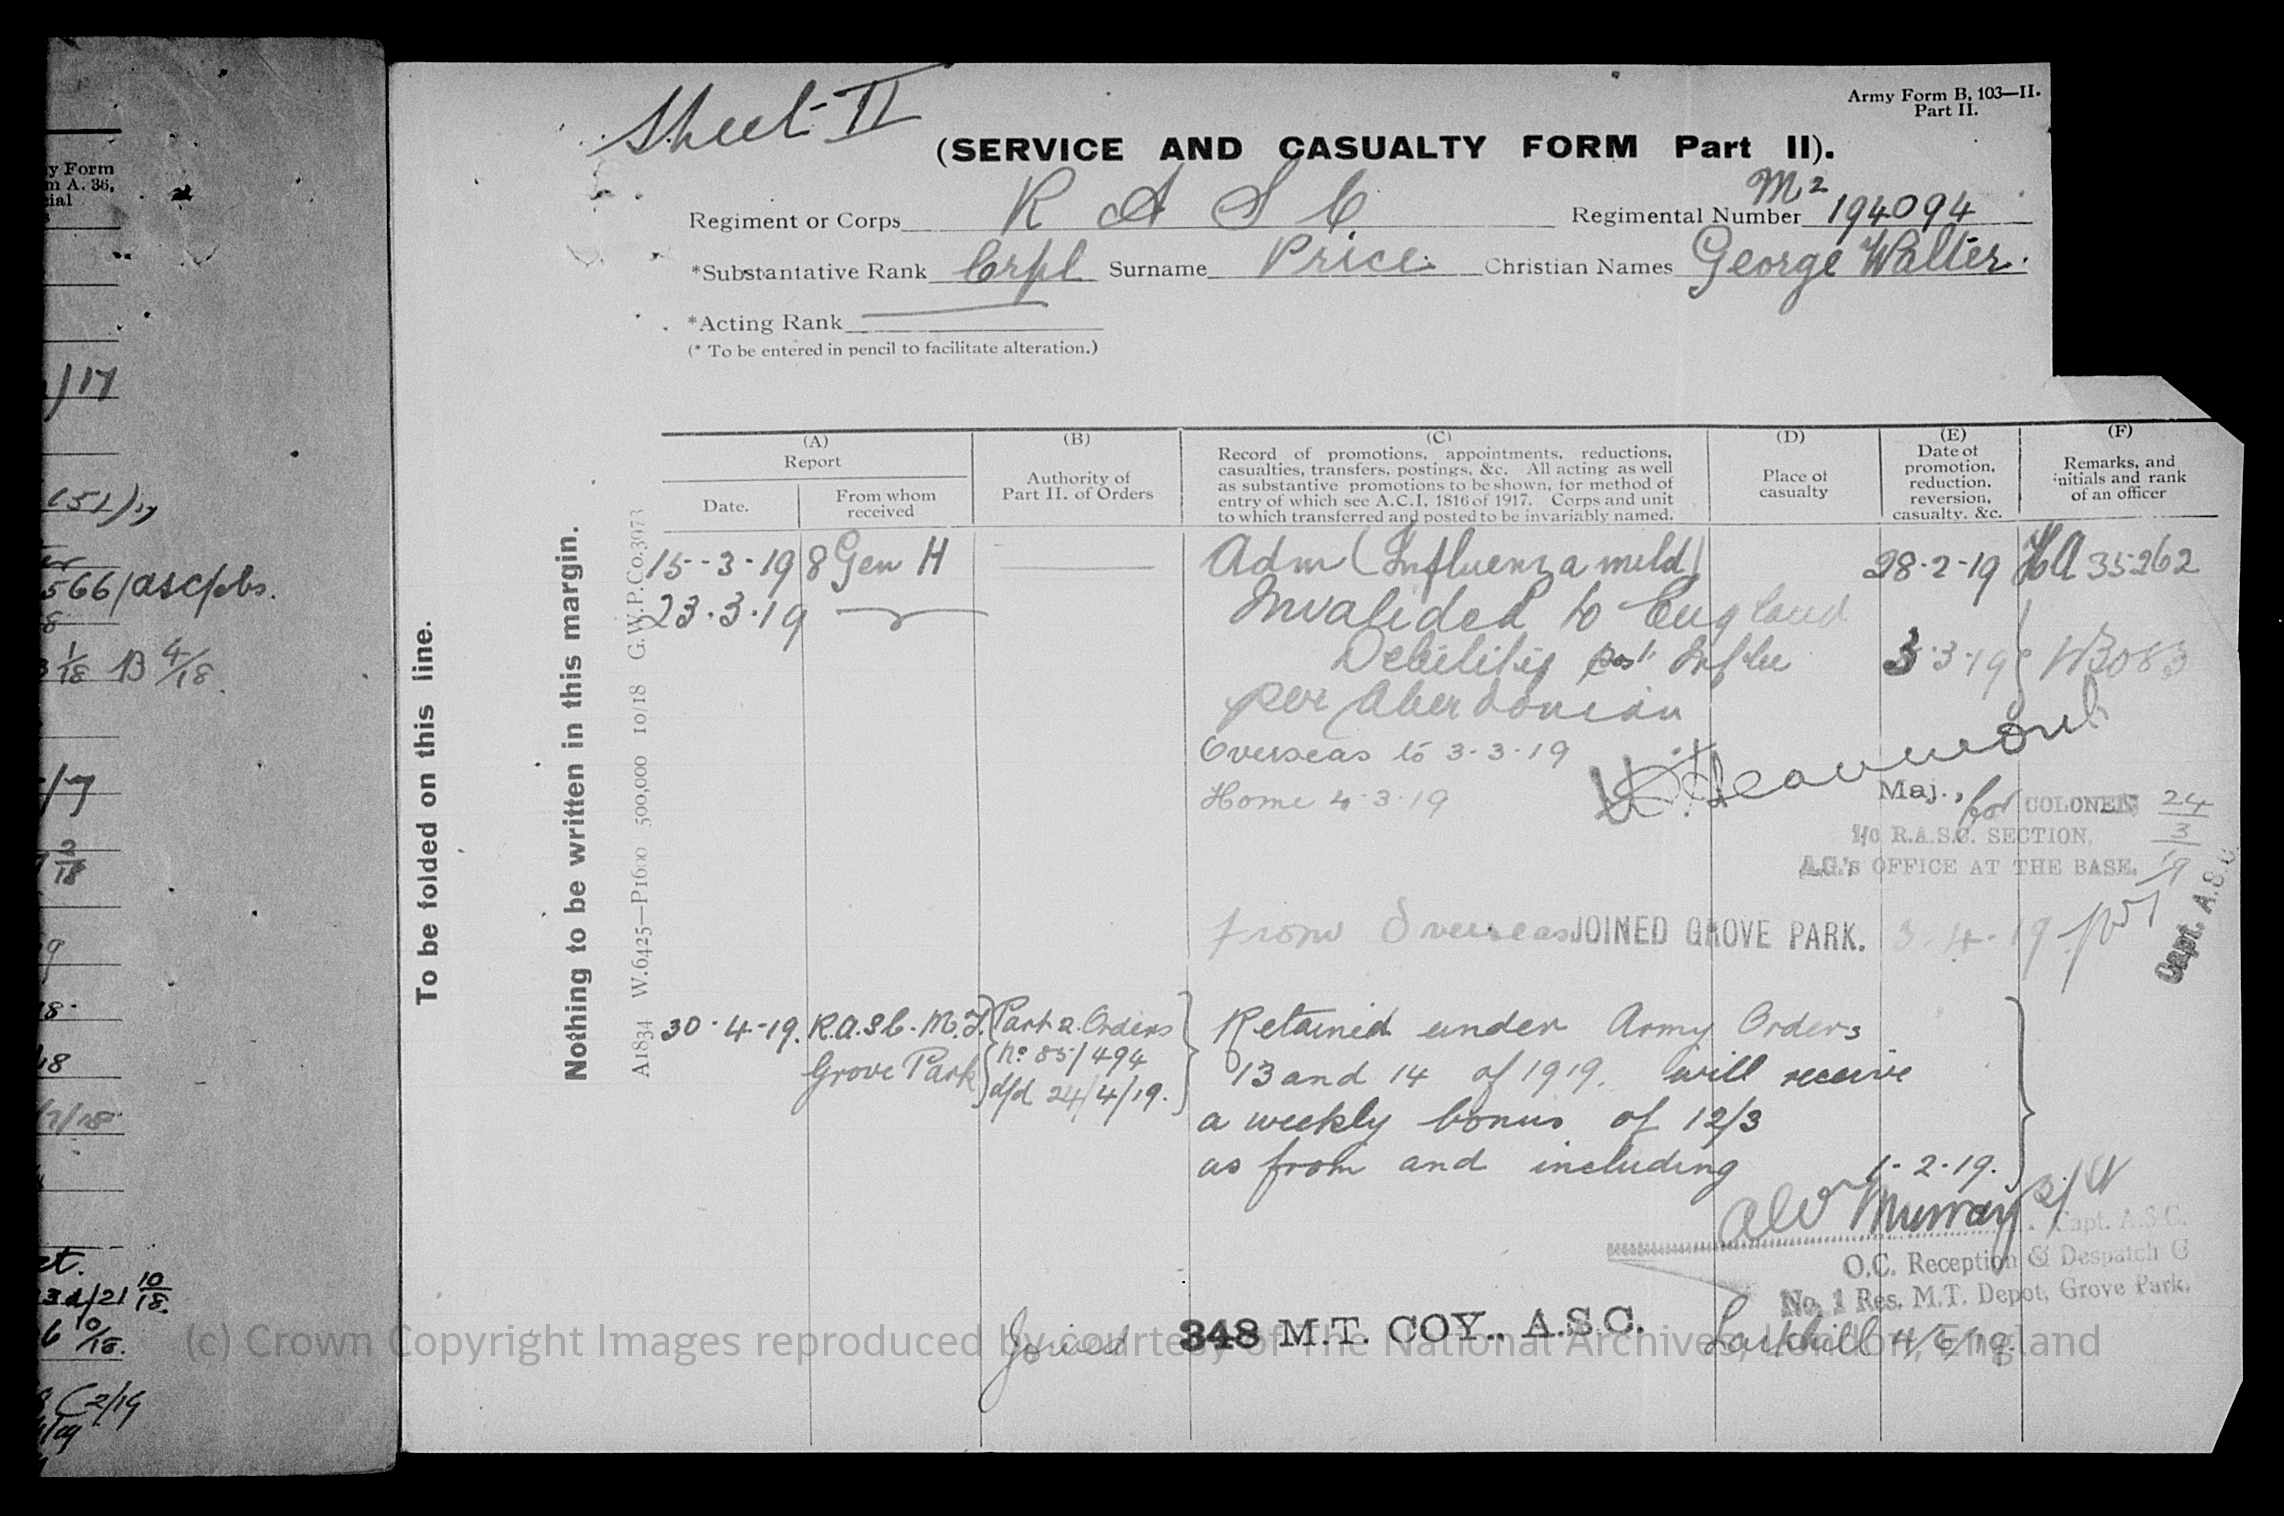 y Form
m A. 36,
cial
s
/17
(51)/17
566/ascpbs.
8
3 1/18 B 4/18.
/17
2/18
9
18-
18
/7/18
et.
10/18.
6 10/18.
2/19
/19
To be folded on this line.
Nothing to be written in this margin.
A1834 W.6425—P1600 500,000 10/18 G.W.P.Co.3973
Sheet II
Army Form B, 103—II.
Part II.
(SERVICE AND CASUALTY FORM Part II).
Regiment or Corps R A S C Regimental Number M2 194094
*Substantative Rank Crpl Surname Price. Christian Names George Walter.
*Acting Rank
(* To be entered in pencil to facilitate alteration.)
(A) (B) (C) (D) (E) (F)
Report
Date.
From whom
received
Authority of
Part II. of Orders
Record of promotions, appointments, reductions,
casualties, transfers, postings, &c. All acting as well
as substantive promotions to be shown, for method of
entry of which see A.C.I. 1816 of 1917. Corps and unit
to which transferred and posted to be invariably named.
Place of
casualty
Date of
promotion,
reduction,
reversion,
casualty, &c.
Remarks, and
initials and rank
of an officer
15-3-19 8 Gen H Adm (Influenza mild) 28-2-19 HA 35262
23.3.19 Invalided to England
Debility post Influ 3.3.19 W3083
per Aberdonian
Overseas to 3-3-19
Home 4-3-19
Maj., for COLONEL 24/3/19
I/c R.A.S.C. SECTION,
A.G.'s OFFICE AT THE BASE.
from Overseas JOINED GROVE PARK. 3-4-19
Capt. A.S.C.
30-4-19. R.A.S.C.-M.T. Part 2. Orders Retained under Army Orders
Grove Park No 85/494 13 and 14 of 1919. will receive
d/d 24/4/19. a weekly bonus of 12/3
as from and including 1-2-19.
AW Murray
Capt. A.S.C.
O.C. Reception & Despatch
No. 1 Res. M.T. Depot, Grove Park.
Joined 348 M.T. COY., A.S.C. Larkhill 4/6/19.
(c) Crown Copyright Images reproduced by courtesy of The National Archives, London, England